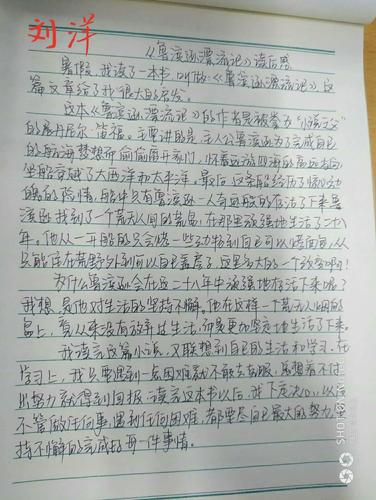 刘洋
《鲁滨逊漂流记》读后感
暑假,我读了一本书,叫做《鲁滨逊漂流记》,这
篇文章给了我很大的启发。
这本《鲁滨逊漂流记》的作者是被誉为"小说之父"
的展丹尼尔·笛福。主要讲的是,主人公鲁滨逊为了完成自己
的航海梦想而偷偷离开家门,怀着远游四海的高远志向,
坐船穿越了大西洋和太平洋。最后,这条船经历了惊心动
魄的险情,船中只有鲁滨逊一人奇迹般的存活了下来。鲁
滨逊找到了一个荒无人间的荒岛,在那里顽强地生活了二十八
年。他从一开始的只会烤一些动物到自己可以烤面包,从
只能住在荒野外到可以自己盖房子,这是多大的一个改变啊!
为什么鲁滨逊会在这二十八年中顽强地存活下来呢?
我想,是他对生活的坚持不懈。他在这样一个荒无人烟的
岛上,看从来没有放弃过生活,而是更加坚定地生活了下来。
我读完这篇小说,又联想到自己的生活和学习。在
学习上,我只要遇到一点困难就不敢去克服,总想着不付
出努力就得到回报。读完这本书以后,我下定决心,以后
不管做任何事,遇到任何困难,都要尽自己最大的努力,坚
持不懈的完成好每一件事情。
SHOT ON